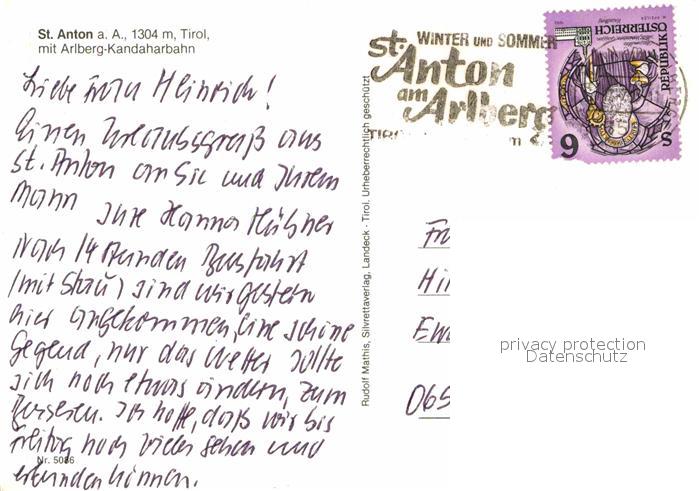 St. Anton a. A., 1304 m, Tirol,
mit Arlberg-Kandaharbahn
Liebe Frau Heinrich!
Einen Urlaubsgruß aus
St. Anton an Sie und Ihren
Mann
Ihre Hanna Hübner
Nach 14 Stunden Busfahrt
(mit Stau) sind wir gestern
hier angekommen, eine schöne
Gegend, nur das Wetter sollte
sich noch etwas ändern, zum
Besseren. Ich hoffe, daß wir bis
Freitag noch vieles sehen und
erkunden können.
Nr. 5086
Rudolf Mathis, Silvrettaverlag, Landeck - Tirol. Urheberrechtlich geschützt
WINTER UND SOMMER
St. Anton
am Arlberg
REPUBLIK
ÖSTERREICH
S 6
Fr
Hi
Em
065
privacy protection
Datenschutz